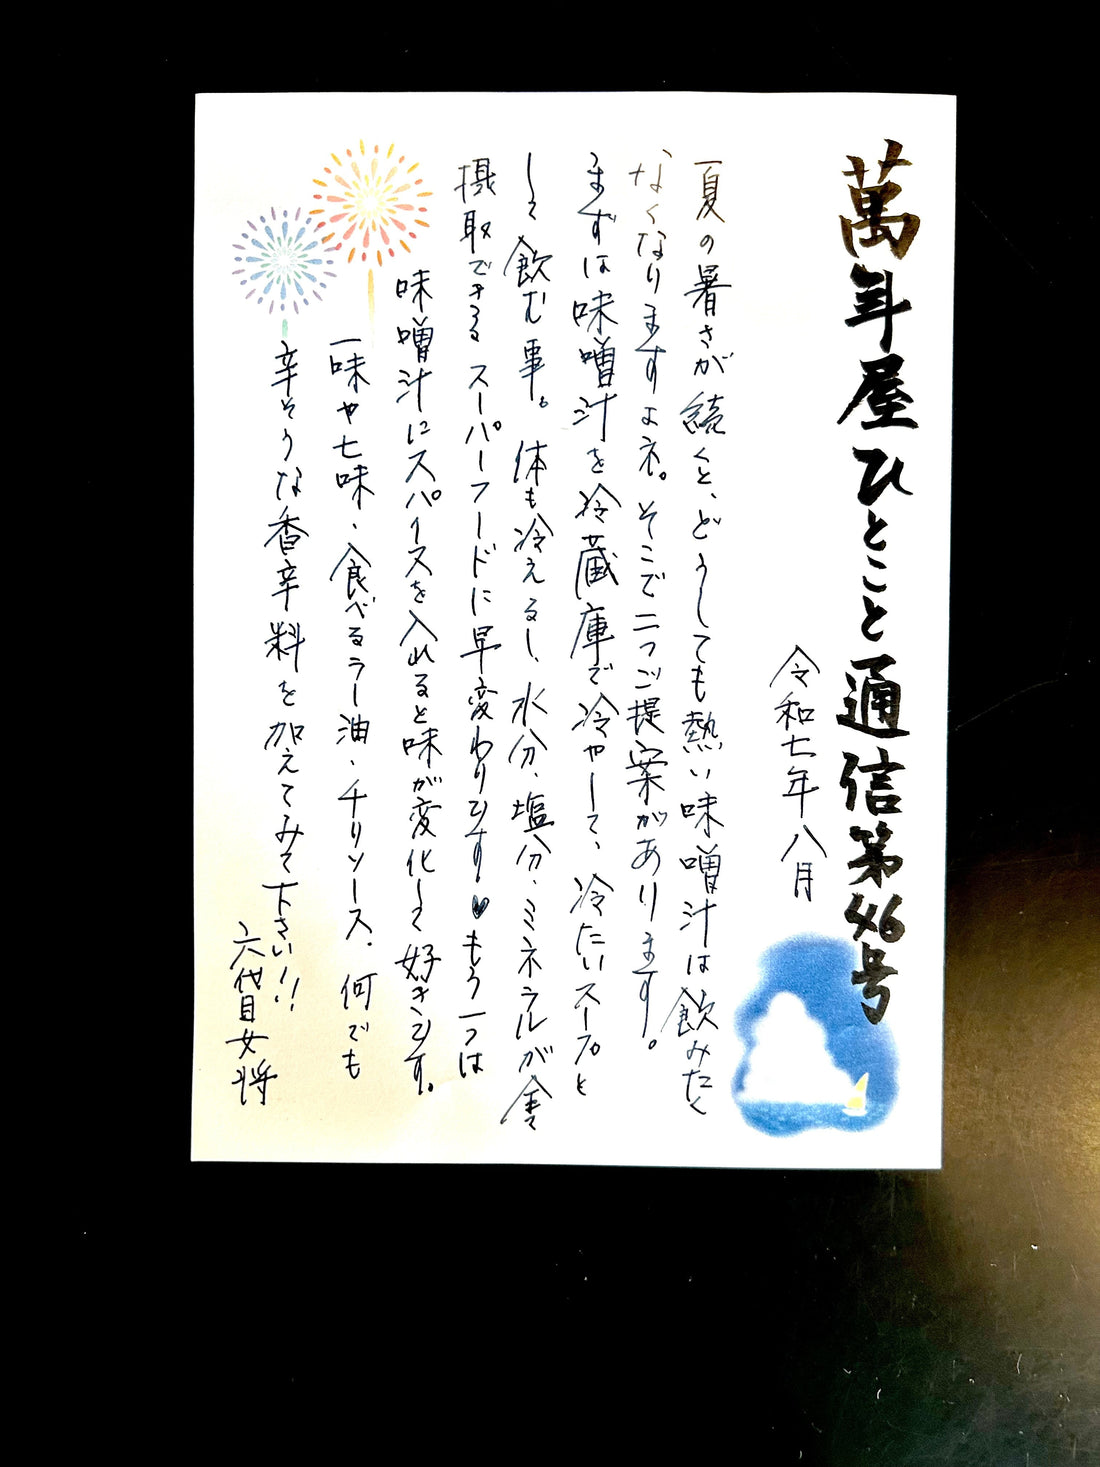 萬年屋ひとこと通信第46号
令和七年八月
夏の暑さが続くと、どうしても熱い味噌汁は飲みたく
なくなりますよネ。そこで二つご提案があります。
まずは味噌汁を冷蔵庫で冷やして、冷たいスープと
して飲む事。体も冷えるし、水分、塩分、ミネラルが全て
摂取できるスーパーフードに早変わりです♥もう一つは
味噌汁にスパイスを入れると味が変化して好きです。
一味や七味、食べるラー油、チリソース、何でも
辛そうな香辛料を加えてみて下さい!!
六代目女将